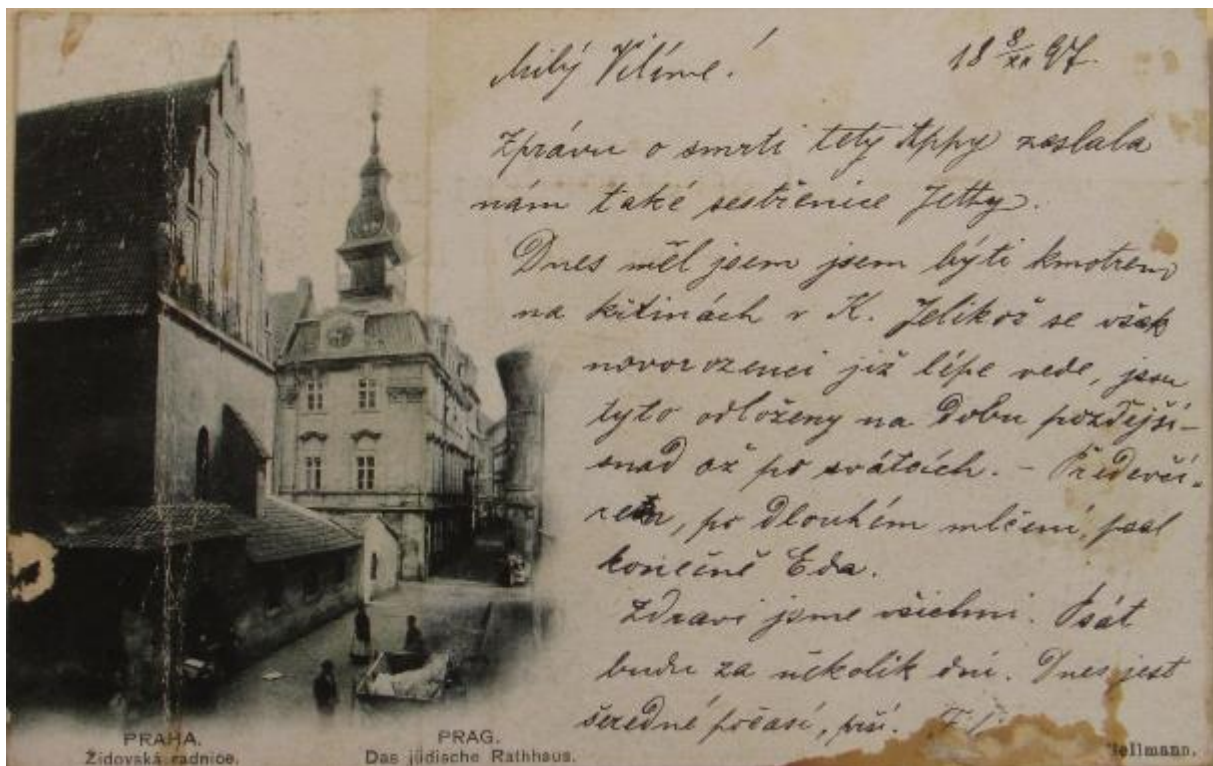 Milý Vilíme!
18 8/XII 97.
Zprávu o smrti tety Appy zaslala
nám také sestřenice Jetty.
Dnes měl jsem jsem býti kmotrem
na křtinách v K. Jelikož se však
novorozenci již lépe vede, jsou
tyto odloženy na dobu pozdější–
snad až po svátcích. – Předevčí-
rem, po dlouhém mlčení, psal
konečně Eda.
Zdrávi jsme všichni. Psát
budu za několik dní. Dnes jest
šeredné počasí, prší.
PRAHA.
Židovská radnice.
PRAG.
Das jüdische Rathhaus.